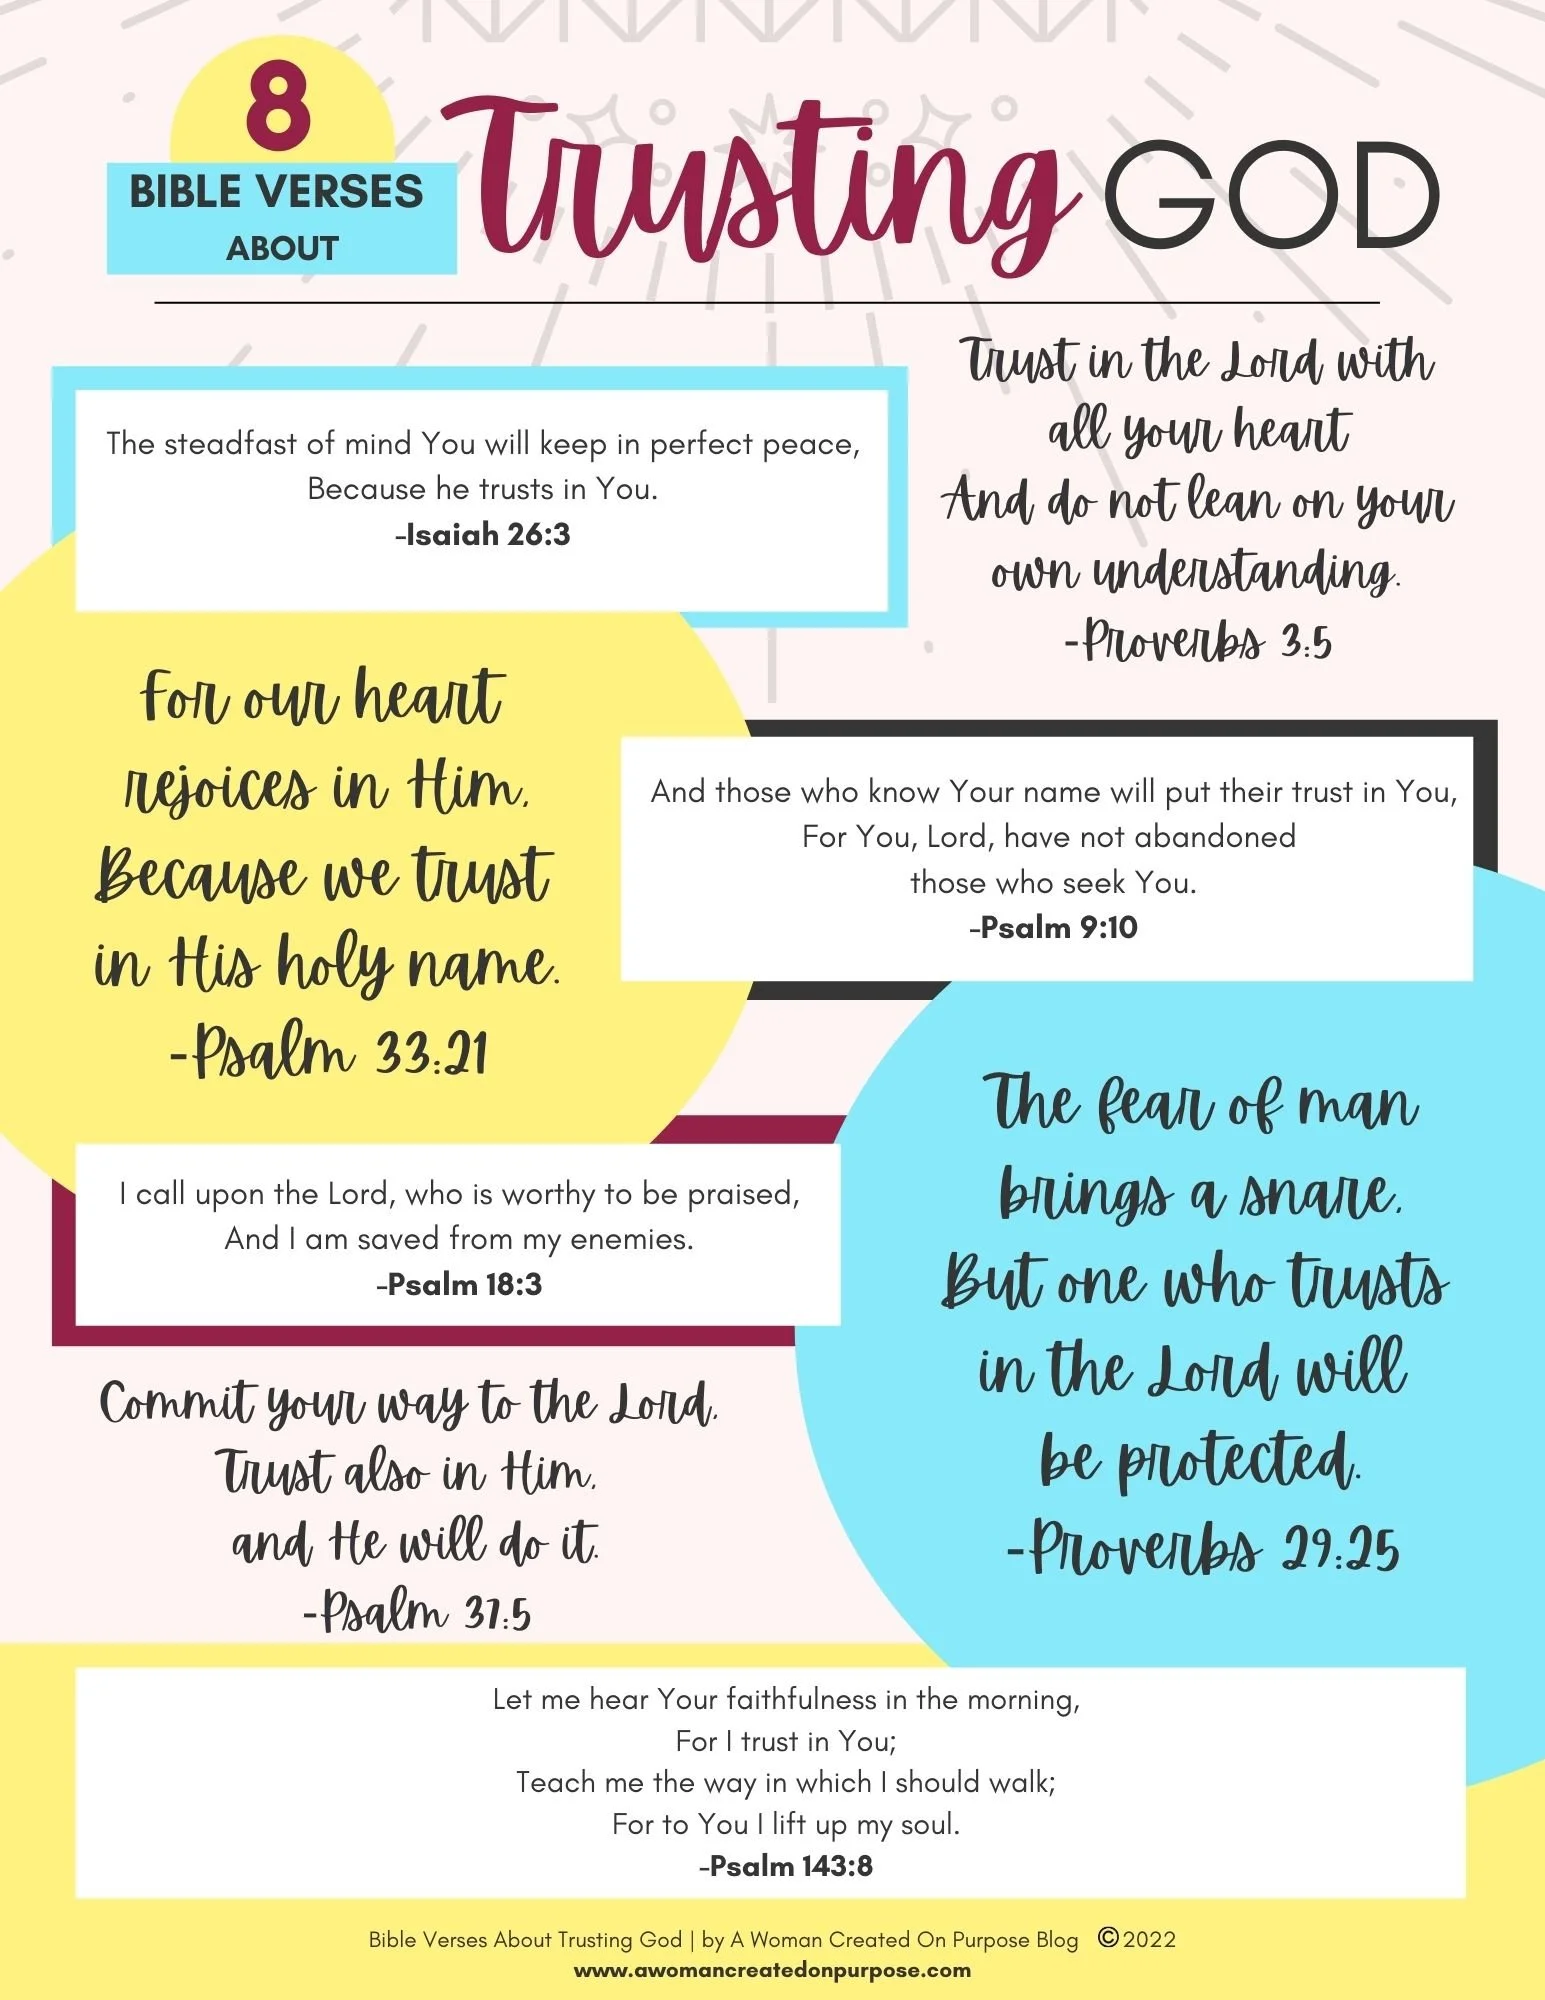 8
BIBLE VERSES
ABOUT
Trusting GOD
The steadfast of mind You will keep in perfect peace,
Because he trusts in You.
-Isaiah 26:3
Trust in the Lord with
all your heart
And do not lean on your
own understanding.
-Proverbs 3:5
For our heart
rejoices in Him,
Because we trust
in His holy name.
-Psalm 33:21
And those who know Your name will put their trust in You,
For You, Lord, have not abandoned
those who seek You.
-Psalm 9:10
I call upon the Lord, who is worthy to be praised,
And I am saved from my enemies.
-Psalm 18:3
The fear of man
brings a snare,
But one who trusts
in the Lord will
be protected.
-Proverbs 29:25
Commit your way to the Lord,
Trust also in Him,
and He will do it.
-Psalm 37:5
Let me hear Your faithfulness in the morning,
For I trust in You;
Teach me the way in which I should walk;
For to You I lift up my soul.
-Psalm 143:8
Bible Verses About Trusting God | by A Woman Created On Purpose Blog ©2022
www.awomancreatedonpurpose.com